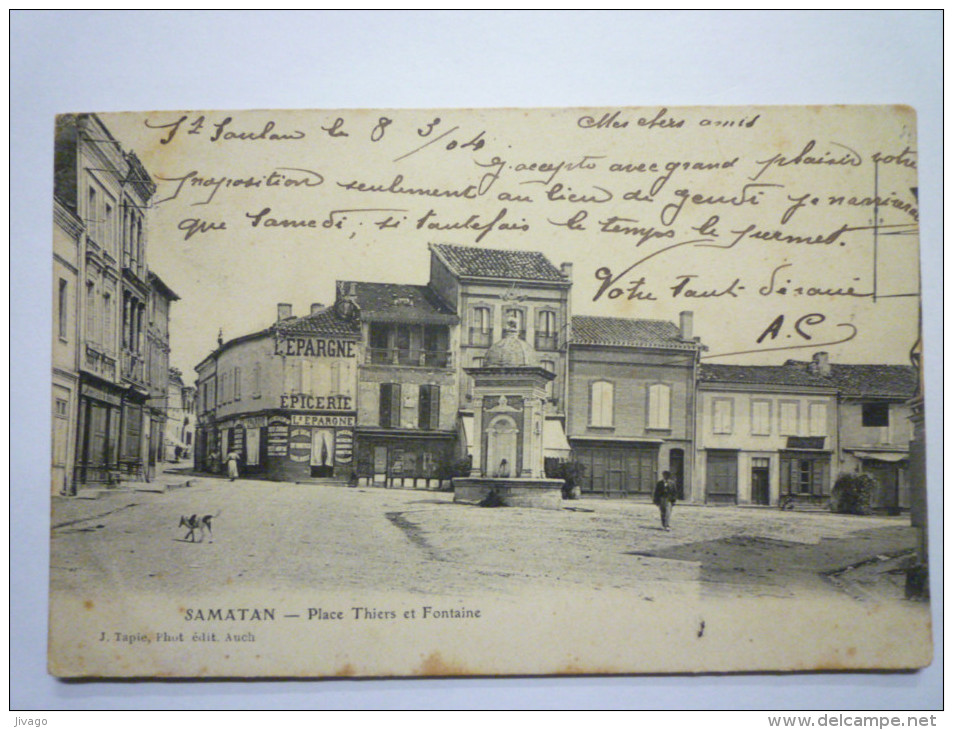 St Soulan le 8 3/04 Mes chers amis
J'accepte avec grand plaisir votre
proposition seulement au lieu de jeudi je n'arriverai
que Samedi, si toutefois le temps le permet.
Votre tout dévoué
A.C.
L'EPARGNE
ÉPICERIE
L'EPARGNE
L'EPARGNE
SAMATAN — Place Thiers et Fontaine
J. Tapie, Phot. édit. Auch
Jivago
www.delcampe.net